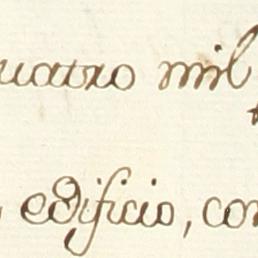 uatro mil
, edificio, con